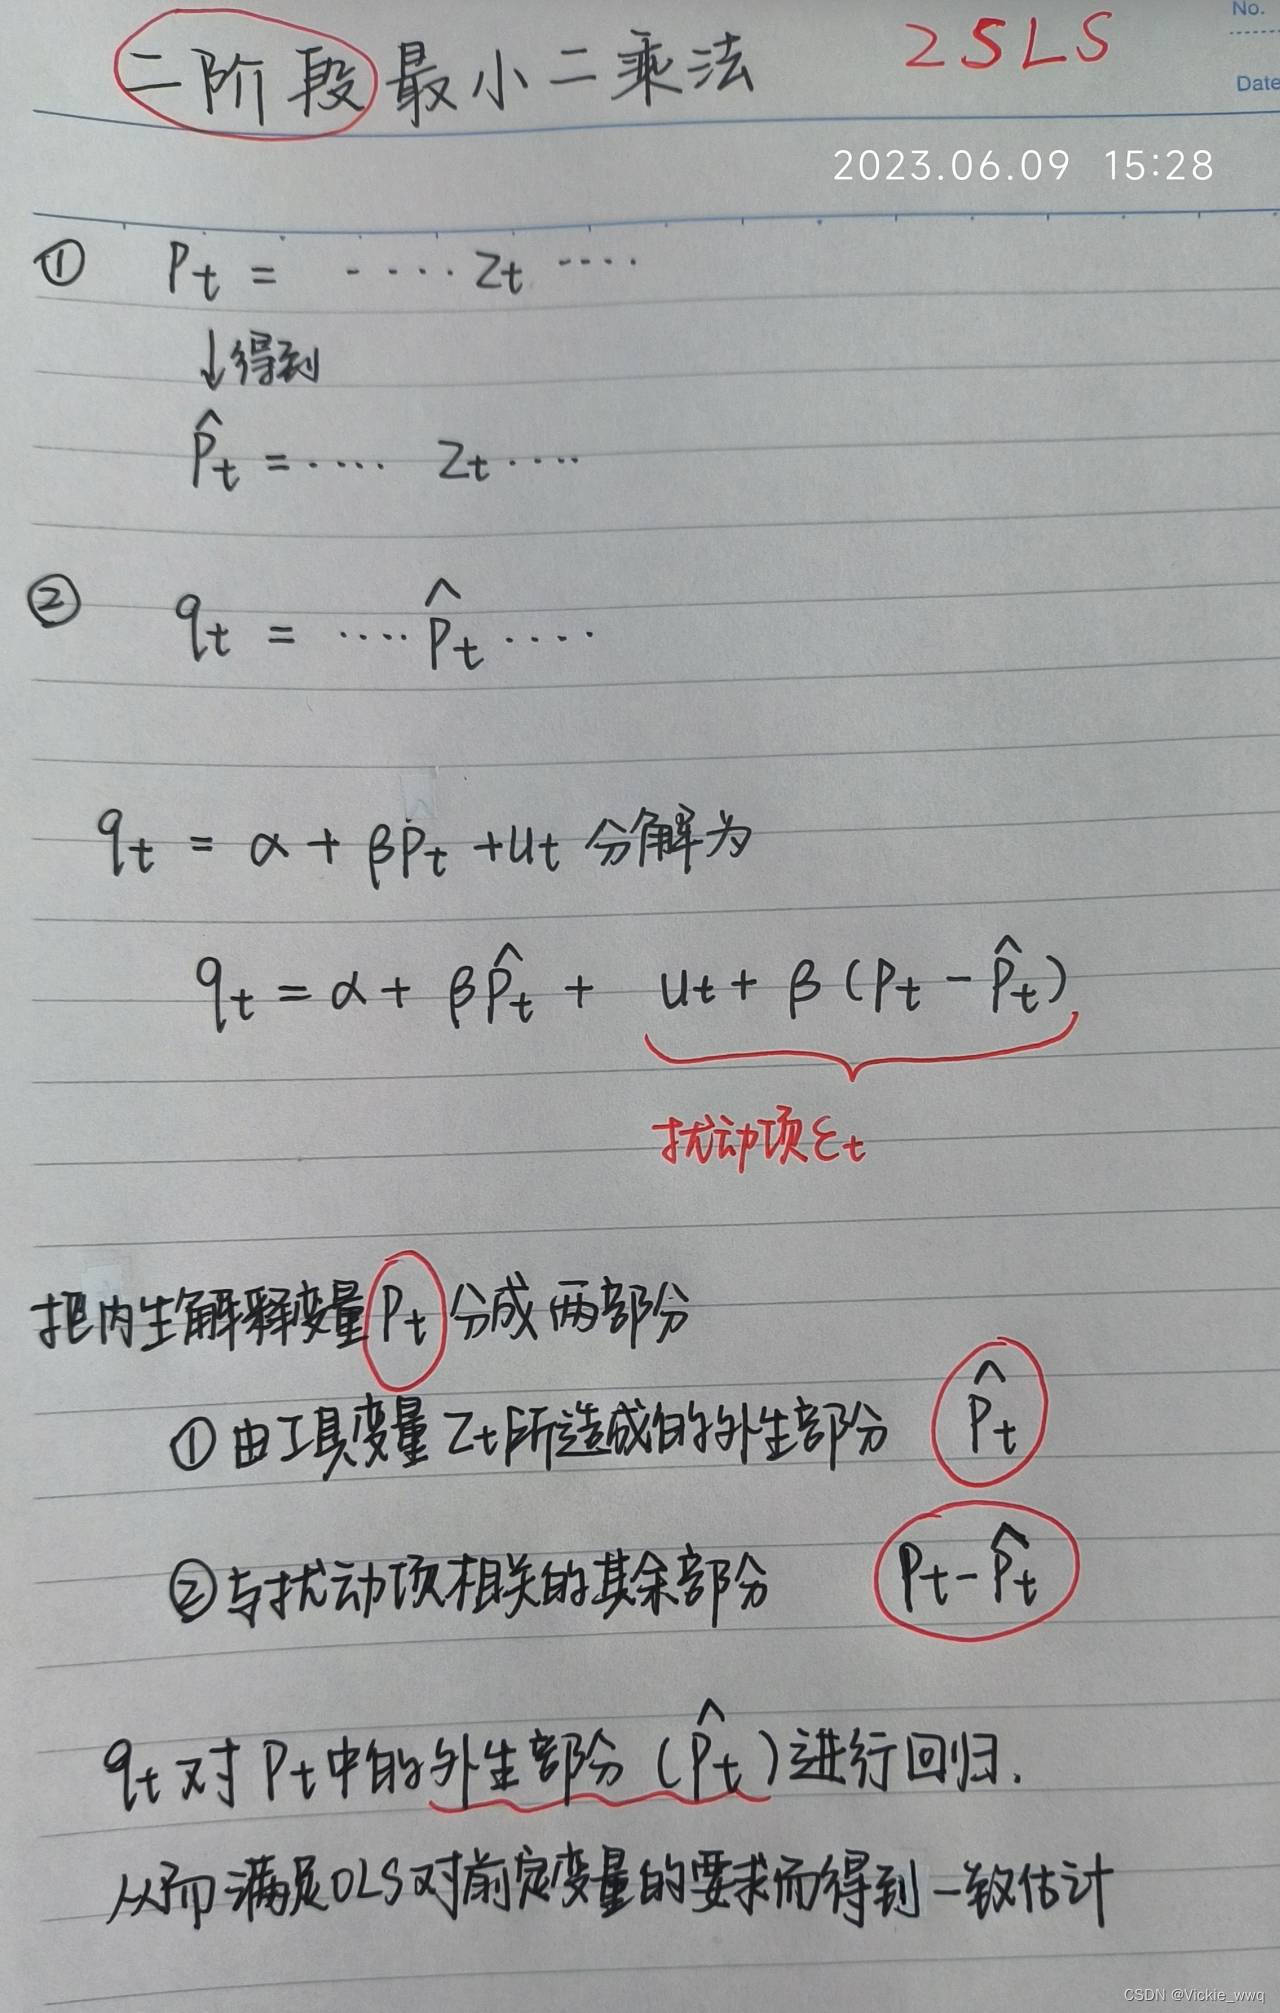 二阶段最小二乘法 2SLS
No.
Date
2023.06.09 15:28
① Pt = ····· Zt ····
↓得到
P̂t = ···· Zt ····
② qt = ···· P̂t ····
qt = α + βPt + ut 分解为
qt = α + βP̂t + ut + β (Pt - P̂t)
扰动项εt
把内生解释变量Pt分成两部分
①由工具变量Zt所造成的外生部分 P̂t
②与扰动项相关的其余部分 Pt - P̂t
qt对Pt中的外生部分(P̂t)进行回归.
从而满足OLS对前定变量的要求而得到一致估计
CSDN @Vickie_wwq